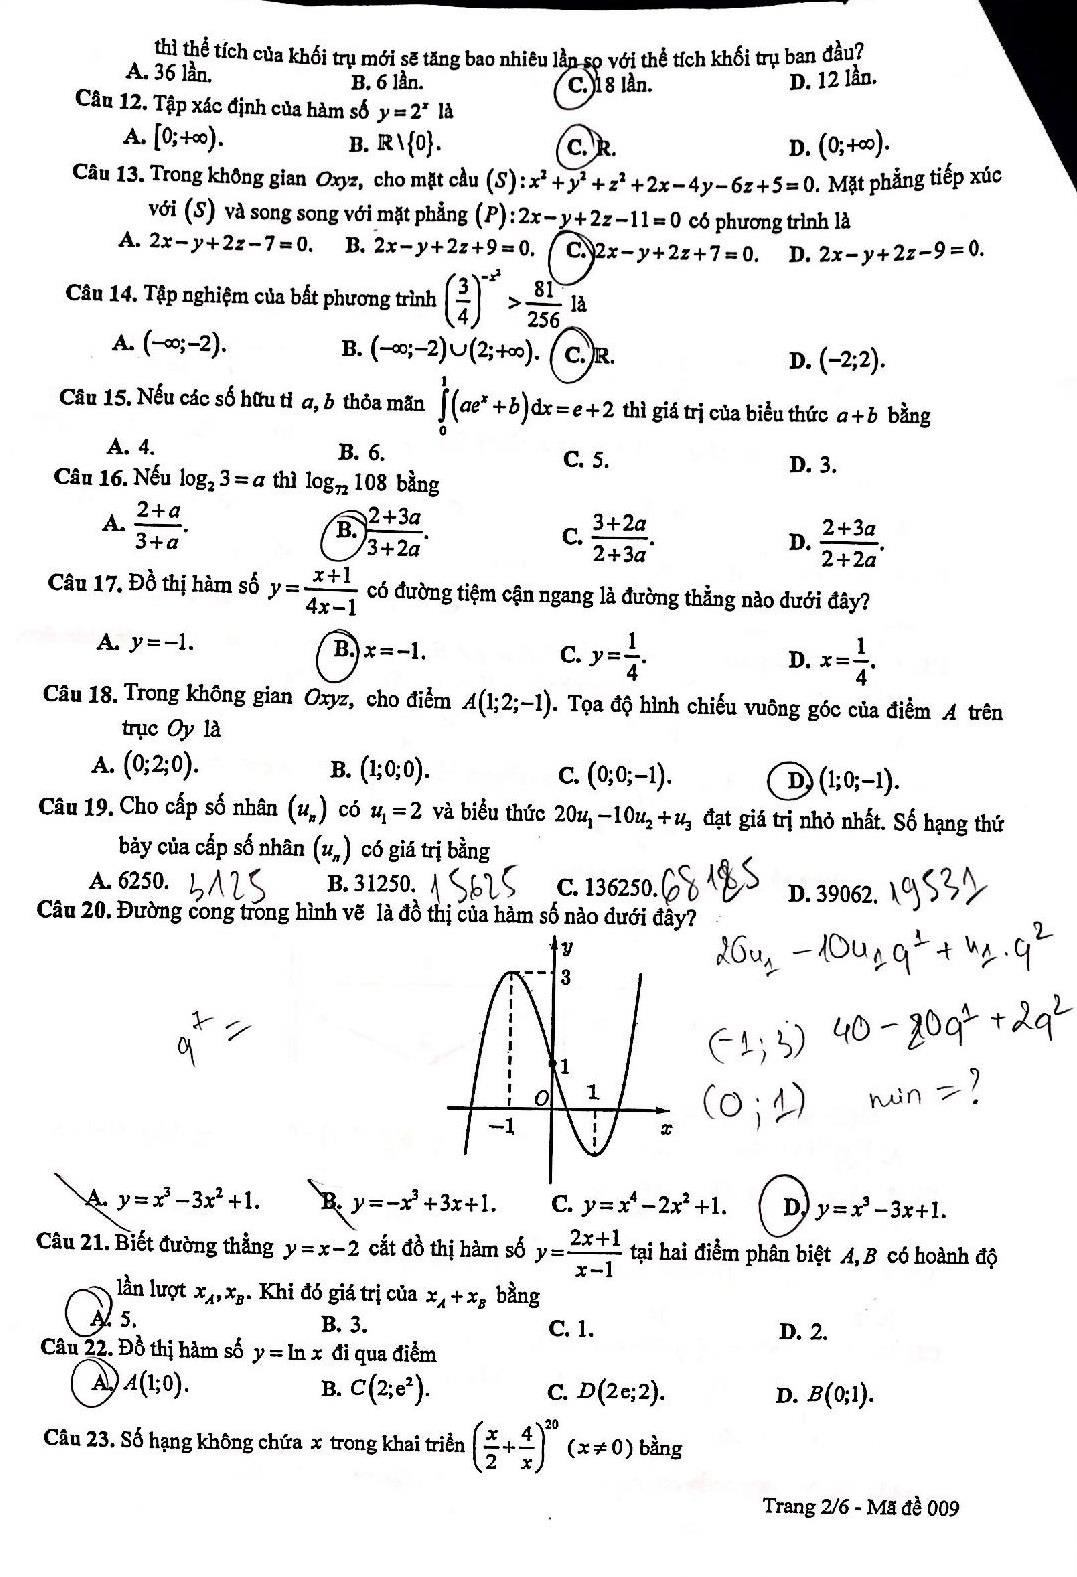 thì thể tích của khối trụ mới sẽ tăng bao nhiêu lần so với thể tích khối trụ ban đầu?
A. 36 lần. B. 6 lần. C. 18 lần. D. 12 lần.
Câu 12. Tập xác định của hàm số y = 2^x là
A. [0;+∞). B. ℝ\{0}. C. ℝ. D. (0;+∞).
Câu 13. Trong không gian Oxyz, cho mặt cầu (S): x²+y²+z²+2x−4y−6z+5=0. Mặt phẳng tiếp xúc
với (S) và song song với mặt phẳng (P): 2x−y+2z−11=0 có phương trình là
A. 2x−y+2z−7=0. B. 2x−y+2z+9=0. C. 2x−y+2z+7=0. D. 2x−y+2z−9=0.
Câu 14. Tập nghiệm của bất phương trình (3/4)^(−x²) > 81/256 là
A. (−∞;−2). B. (−∞;−2)∪(2;+∞). C. ℝ. D. (−2;2).
Câu 15. Nếu các số hữu tỉ a, b thỏa mãn ∫₀¹(ae^x+b)dx = e+2 thì giá trị của biểu thức a+b bằng
A. 4. B. 6. C. 5. D. 3.
Câu 16. Nếu log₂ 3 = a thì log₇₂ 108 bằng
A. (2+a)/(3+a). B. (2+3a)/(3+2a). C. (3+2a)/(2+3a). D. (2+3a)/(2+2a).
Câu 17. Đồ thị hàm số y = (x+1)/(4x−1) có đường tiệm cận ngang là đường thẳng nào dưới đây?
A. y=−1. B. x=−1. C. y=1/4. D. x=1/4.
Câu 18. Trong không gian Oxyz, cho điểm A(1;2;−1). Tọa độ hình chiếu vuông góc của điểm A trên
trục Oy là
A. (0;2;0). B. (1;0;0). C. (0;0;−1). D. (1;0;−1).
Câu 19. Cho cấp số nhân (uₙ) có u₁=2 và biểu thức 20u₁−10u₂+u₃ đạt giá trị nhỏ nhất. Số hạng thứ
bảy của cấp số nhân (uₙ) có giá trị bằng
A. 6250. 3125 B. 31250. 15625 C. 136250. 68125 D. 39062. 19531
Câu 20. Đường cong trong hình vẽ là đồ thị của hàm số nào dưới đây?
20u₁ − 10u₁q¹ + u₁.q²
y
3
q⁷ =
(−1;3) 40 − 20q¹ + 2q²
1
O 1
(0;1) min = ?
−1 x
A. y=x³−3x²+1. B. y=−x³+3x+1. C. y=x⁴−2x²+1. D. y=x³−3x+1.
Câu 21. Biết đường thẳng y=x−2 cắt đồ thị hàm số y=(2x+1)/(x−1) tại hai điểm phân biệt A, B có hoành độ
lần lượt x_A, x_B. Khi đó giá trị của x_A+x_B bằng
A. 5. B. 3. C. 1. D. 2.
Câu 22. Đồ thị hàm số y=ln x đi qua điểm
A. A(1;0). B. C(2;e²). C. D(2e;2). D. B(0;1).
Câu 23. Số hạng không chứa x trong khai triển (x/2+4/x)²⁰ (x≠0) bằng
Trang 2/6 - Mã đề 009